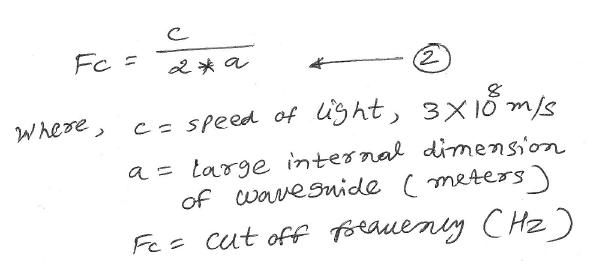 Fc = c / 2 * a ← 2
where, c = speed of light, 3 X 10^8 m/s
a = large internal dimension
of waveguide (meters)
Fc = cut off freauency (Hz)